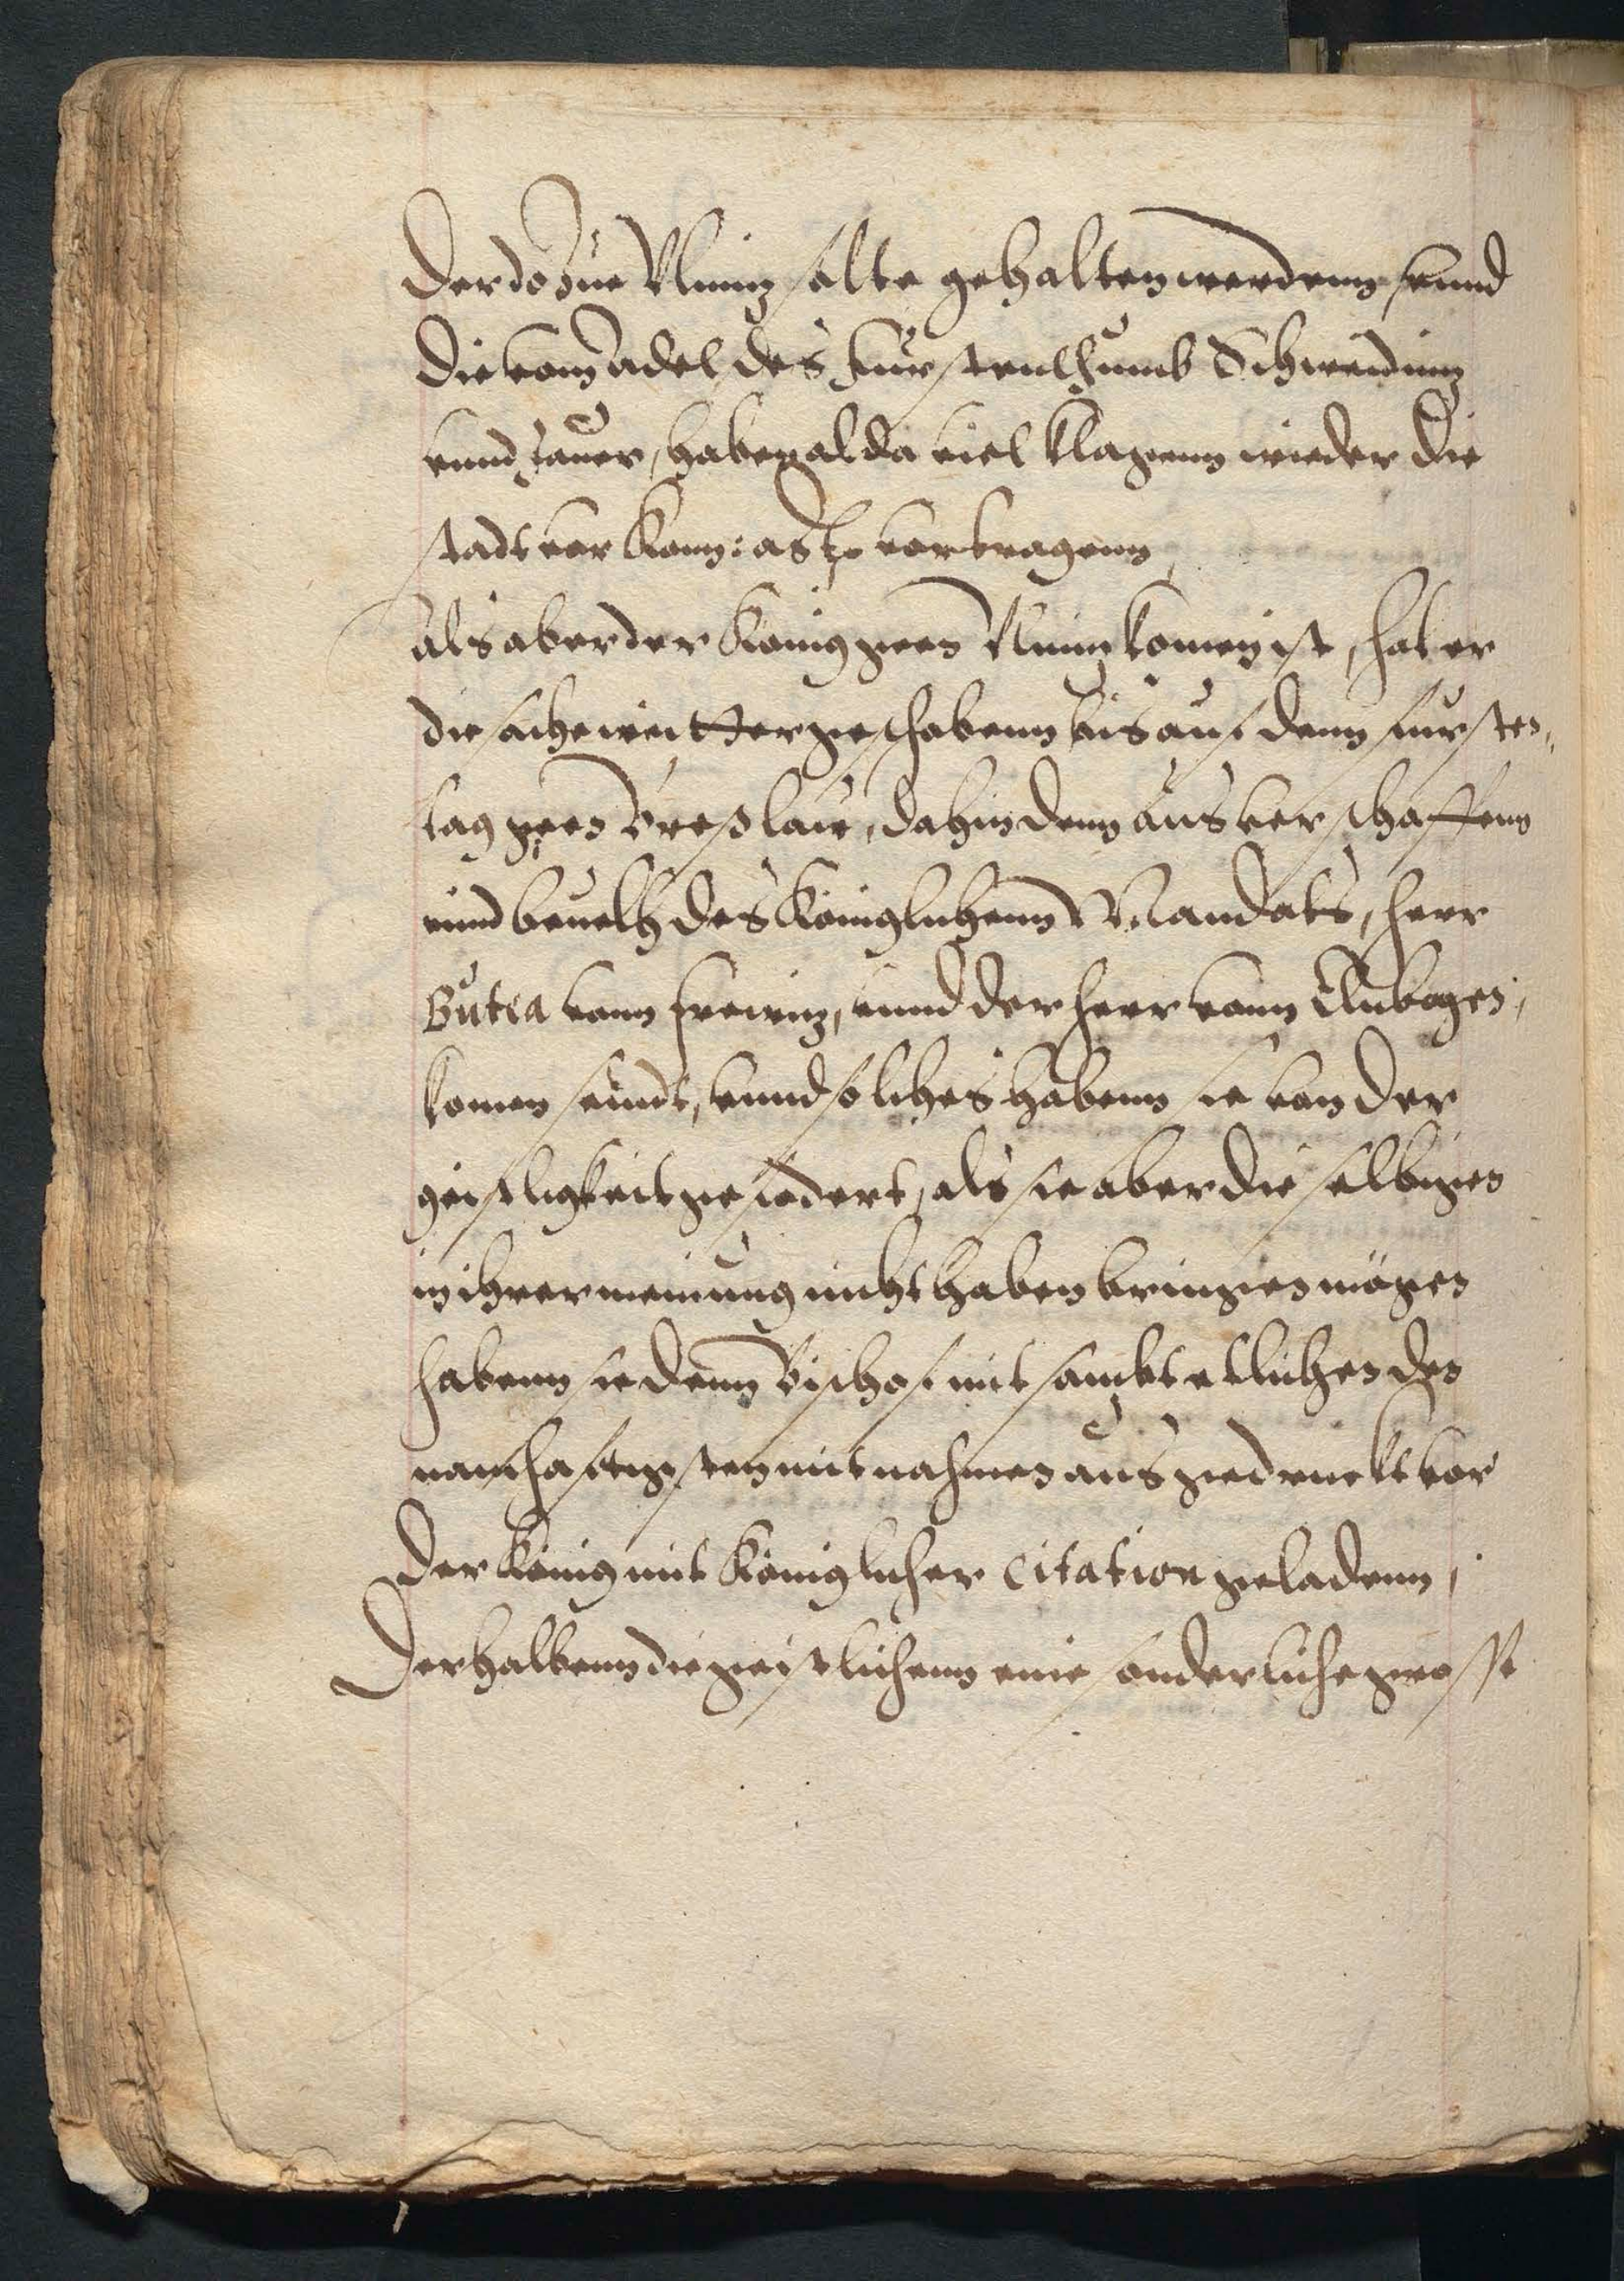 Der do zue Ulmiz solte gehalten werdenn, vnnd
die vom Adel des Fürstenthumb Schweidniz
vnnd Jauer, haben alda viel klagenn wieder die
stadt vor Kon: vortragenn,
Als aber der König geen Ulmiz komen ist, hat er
die sache weitter geschobenn bis auf denn fürsten„
tag geen Breßlaw, dahin denn aus verschaffenn
vnnd beuelh des Königlichenn Mandats, herr
Gutta vonn, vnnd der herr vonn
komen seindt, vnnd solches habenn sie von der
geistligkeit gefodert, als sie aber die selbigen
in ihrer meinung nicht haben bringen mögen
habenn sie denn Bischof mit sambt etlichen den
namhaftigsten mit nahmen ausgedruckt vor
der König mit Königlicher Citation geladenn,
Derhalbenn die geistlichenn eine sonderliche grosse